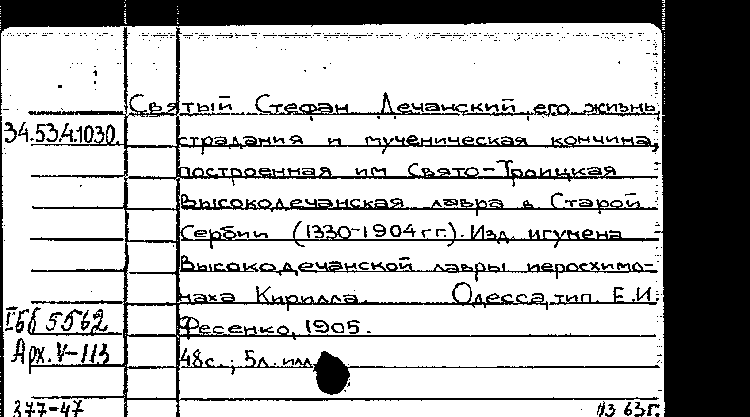 Святый Стефан Дечанский, его жизнь,
34.53.4.1030. страдания и мученическая кончина,
построенная им Свято-Троицкая
Высокодечанская лавра в Старой
Сербии (1330-1904 г.г.). Изд. игумена
Высокодечанской лавры иеросхимо-
наха Кирилла. Одесса, тип. Е.И.
5562 Фесенко, 1905.
Арх. V-113 48 с.; 5 л. илл.
377-47 из 63г.